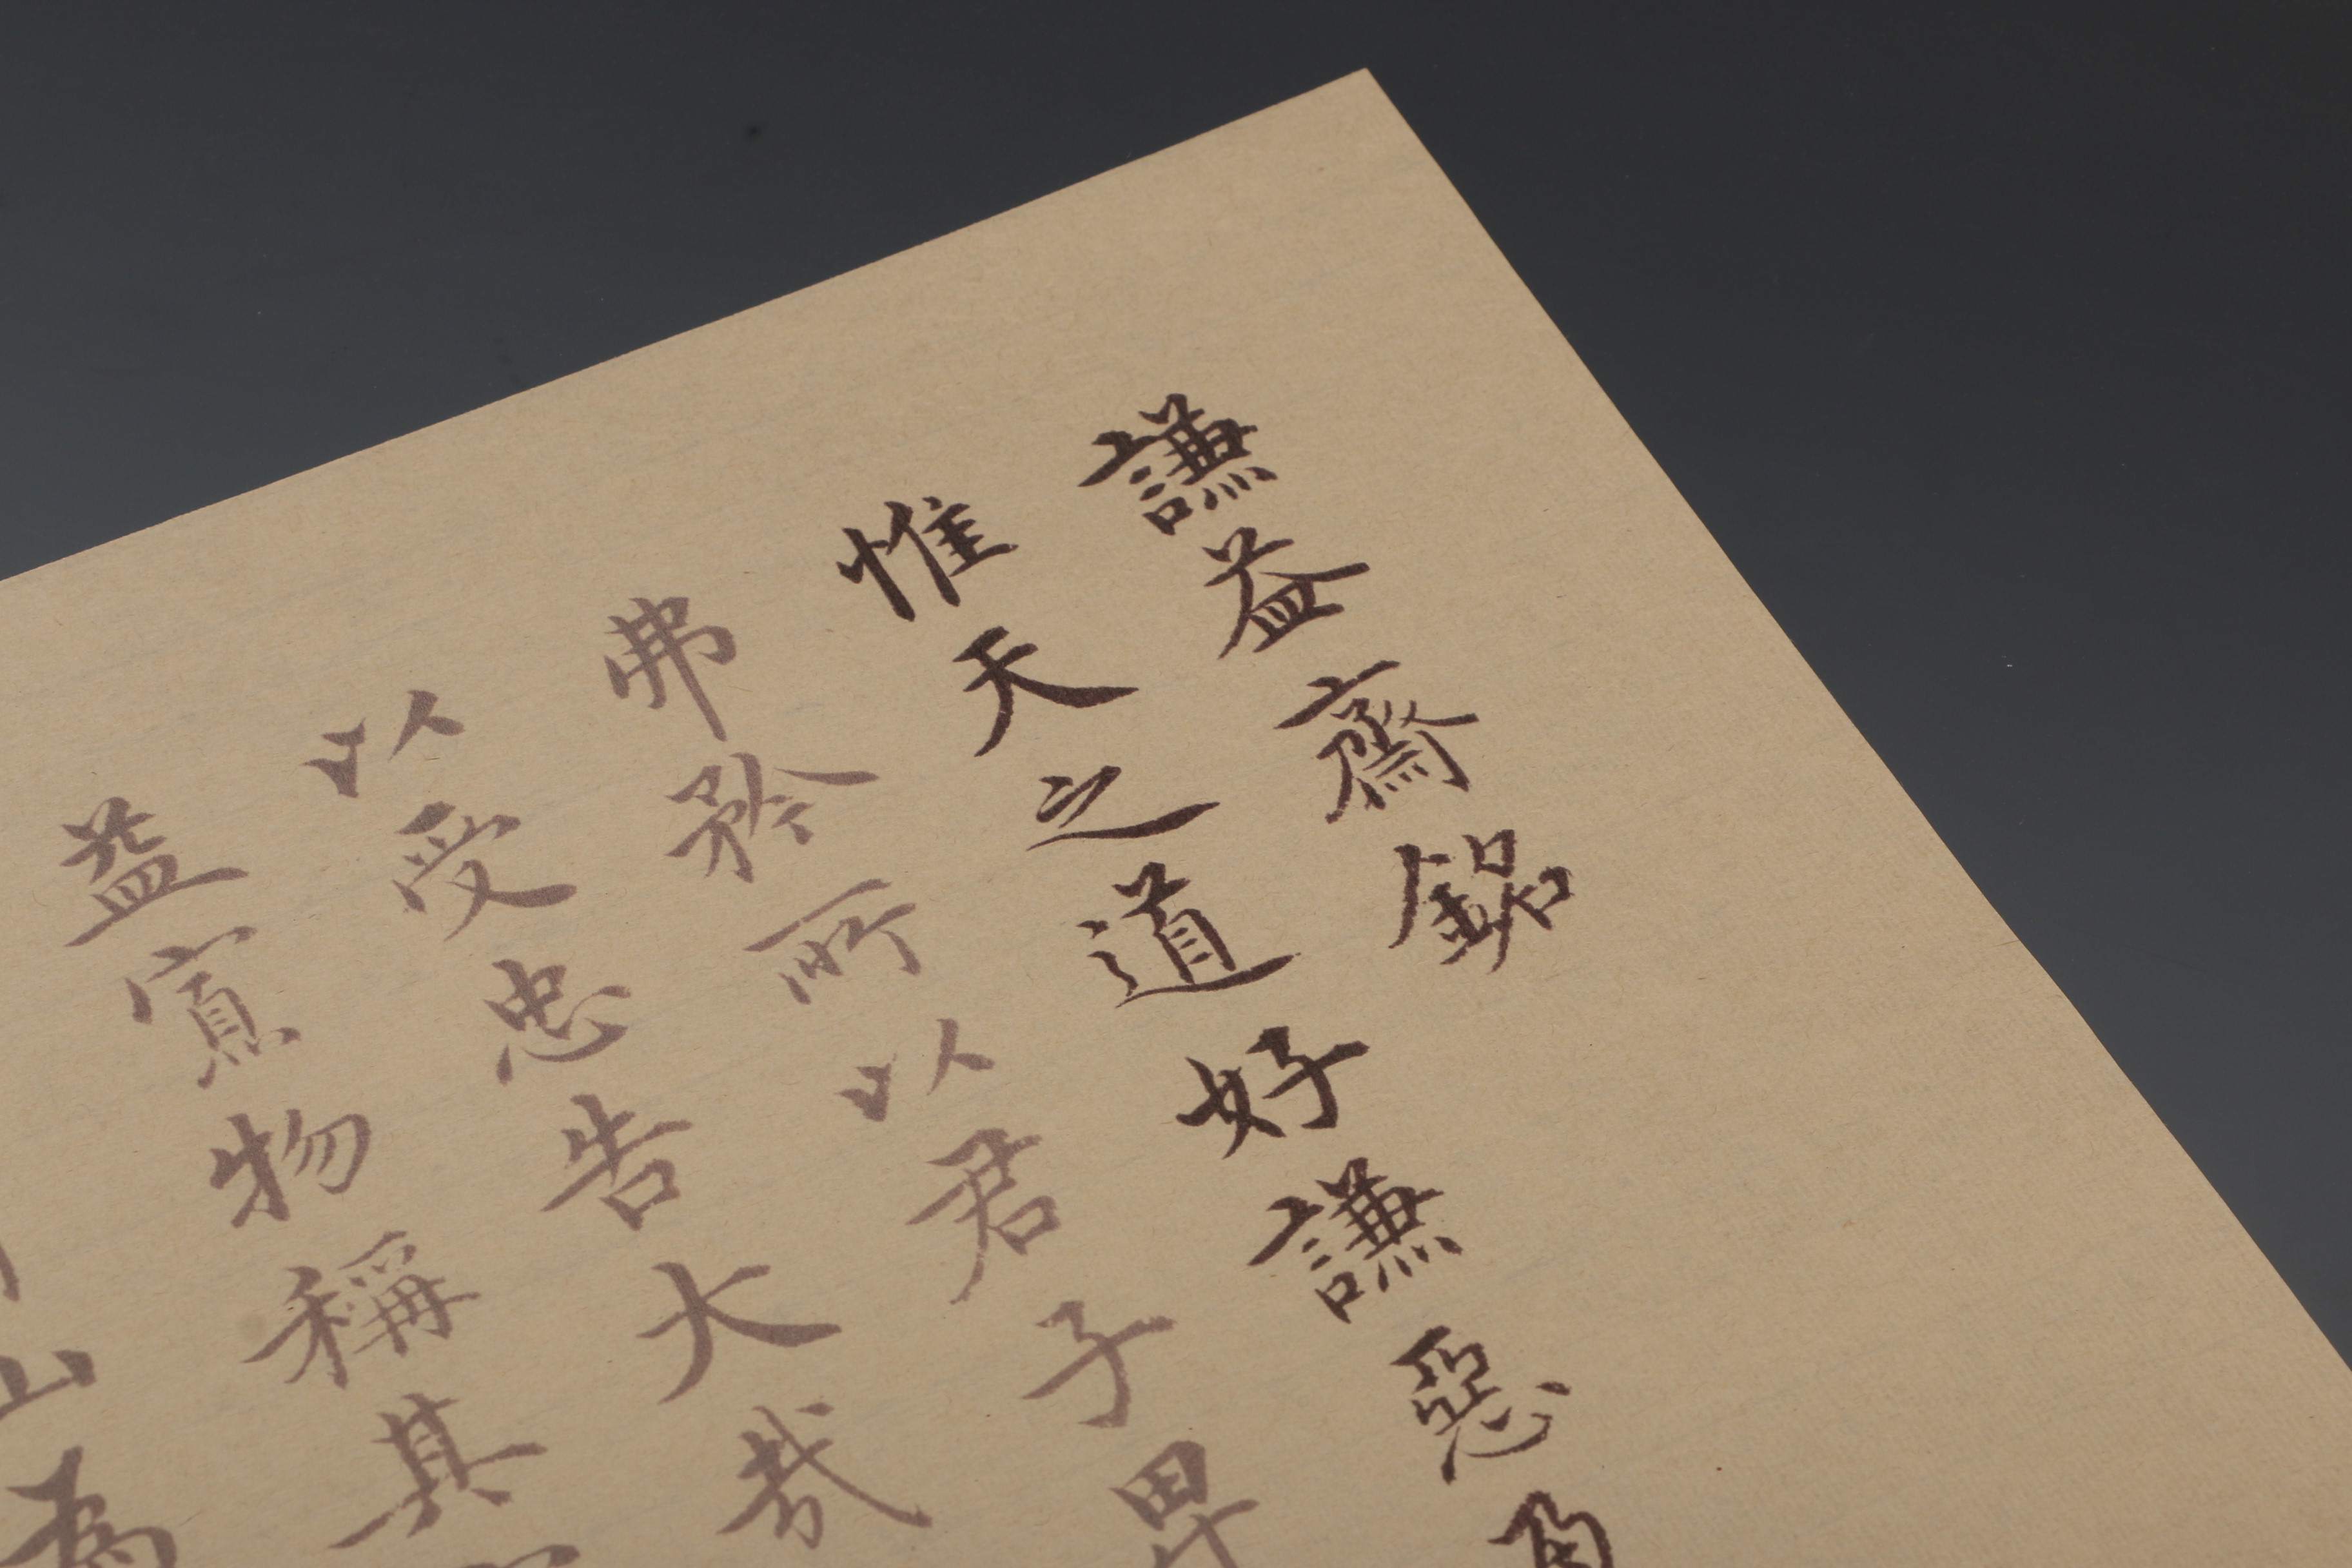 謙益齋銘
惟天之道好謙惡
弗矜所以君子卑
以受忠告大哉
益寡物稱其
山為